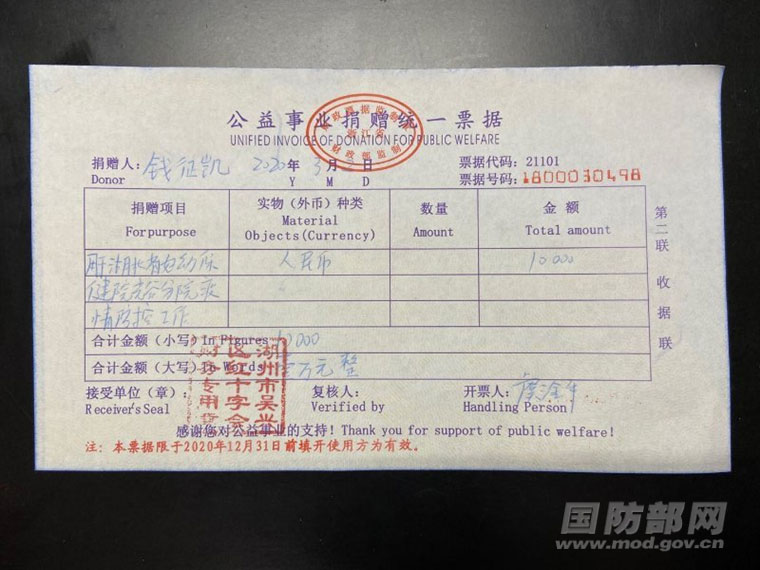 公益事业捐赠统一票据
UNIFIED INVOICE OF DONATION FOR PUBLIC WELFARE
浙江省
财政部监制
捐赠人: 钱征凯 2020年 3月 日 票据代码: 21101
Donor Y M D 票据号码: 1800030498
捐赠项目 实物（外币）种类 数量 金额
For purpose Material Objects(Currency) Amount Total amount
用湖北省妇幼保 人民币 10000
健院光谷分院疫
情防控工作
合计金额（小写）In Figures 10000
合计金额（大写）In Words 壹万元整
接受单位（章）: 复核人: 开票人:
Receiver's Seal Verified by Handling Person
湖州市吴兴
区红十字会
专用章
感谢您对公益事业的支持! Thank you for support of public welfare!
注: 本票据限于2020年12月31日前填开使用方为有效。
第二联 收据联
国防部网
www.mod.gov.cn